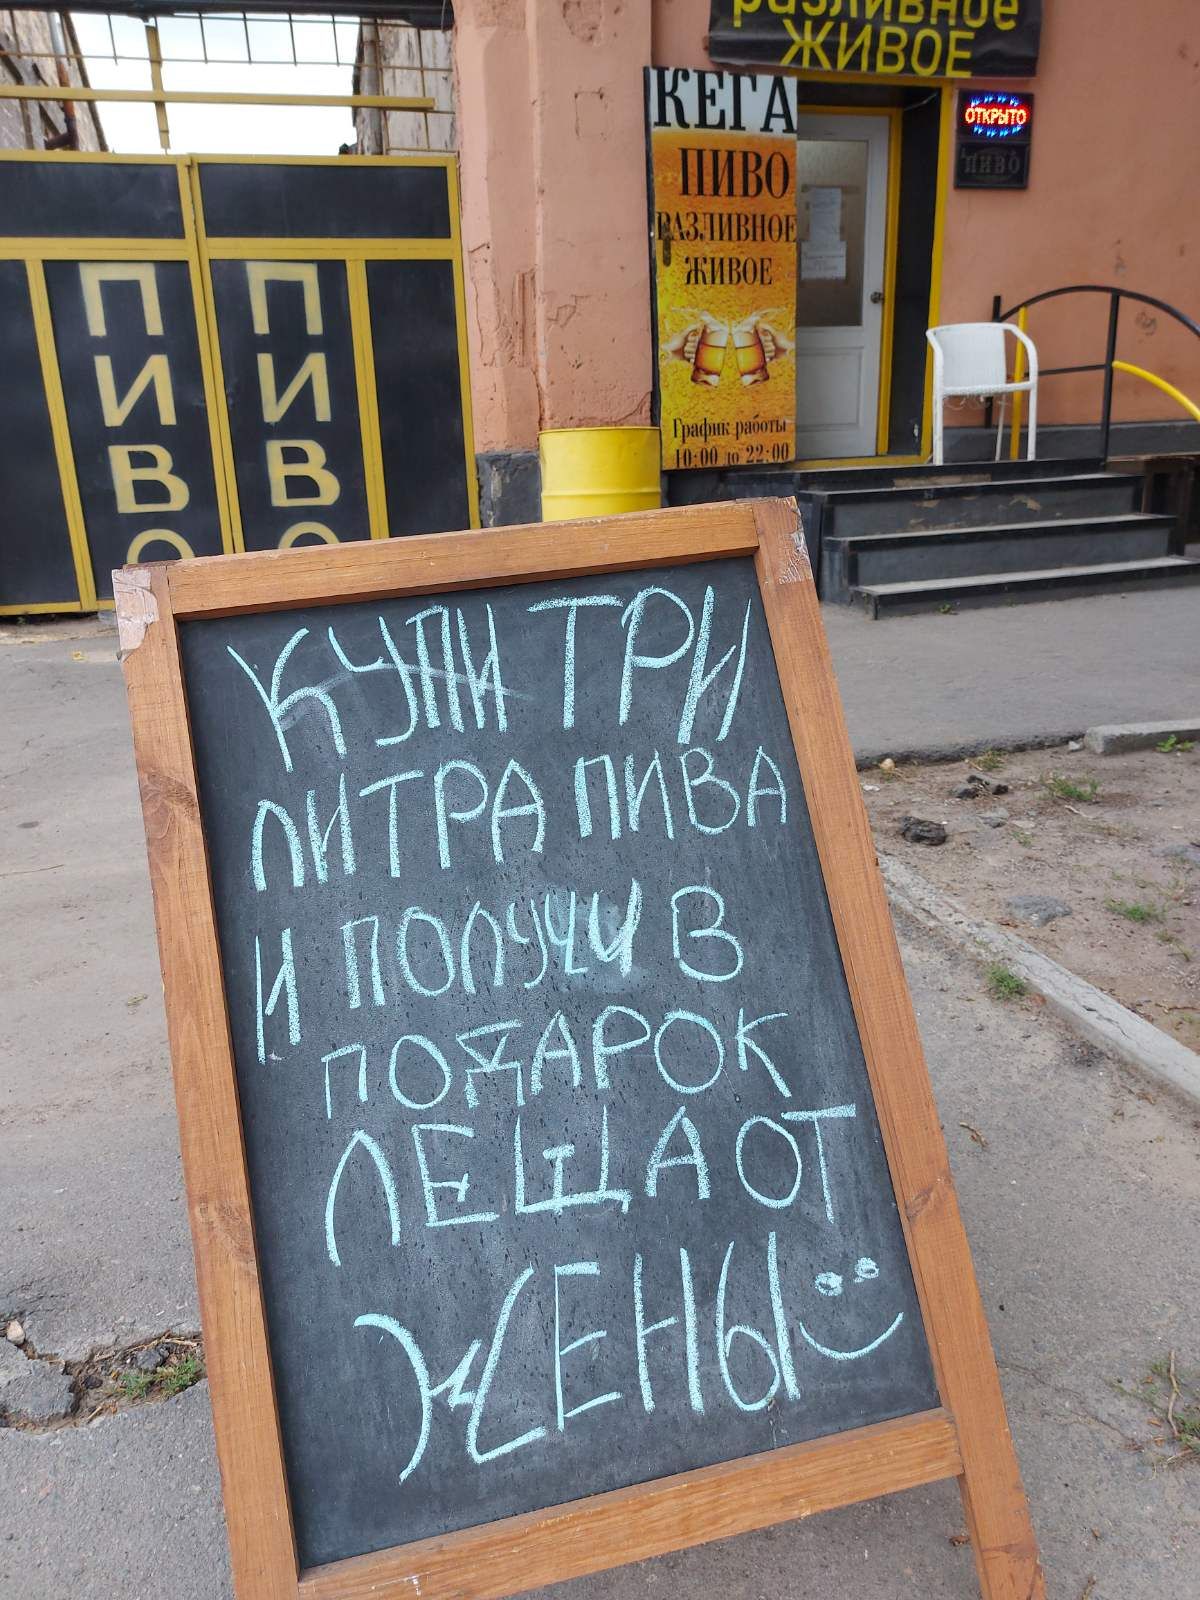 разливное
ЖИВОЕ
КЕГА
ПИВО
РАЗЛИВНОЕ
ЖИВОЕ
График работы
10:00 до 22:00
ОТКРЫТО
ПИВО
ПИВО
ПИВО
КУПИ ТРИ
ЛИТРА ПИВА
И ПОЛУЧИ В
ПОДАРОК
ЛЕЩА ОТ
ЖЕНЫ